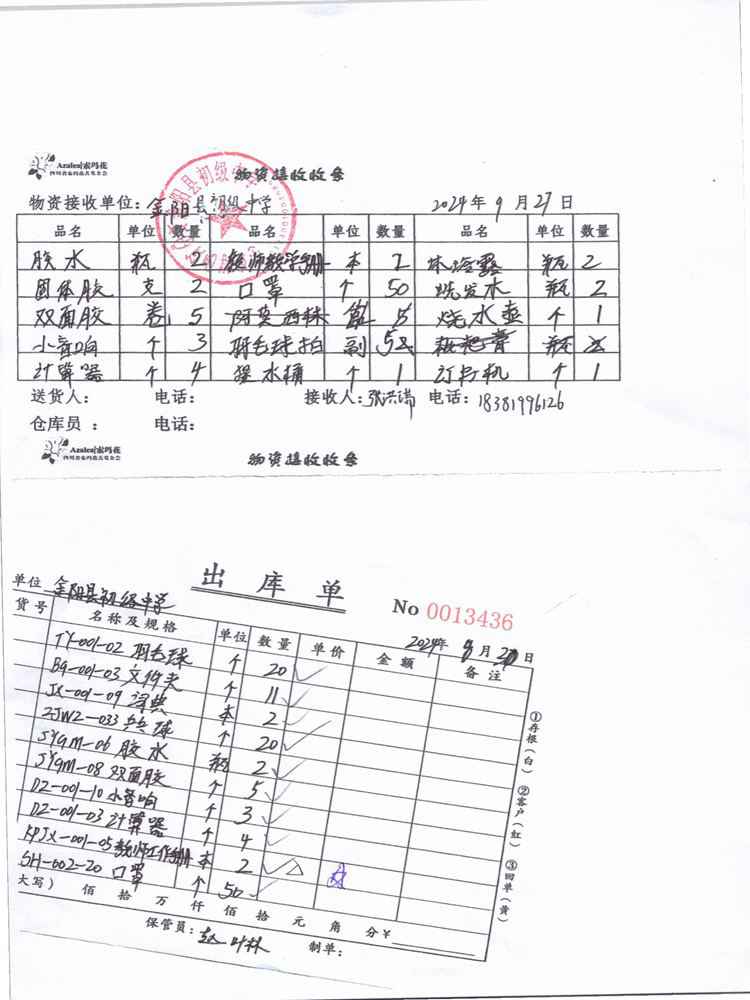 Azalea|索玛花
四川省索玛慈善基金会
物资接收收条
物资接收单位：金阳县初级中学 2024年9月27日
品名 单位 数量 品名 单位 数量 品名 单位 数量
胶水 瓶 2 教师教学手册 本 2 沐浴露 瓶 2
固体胶 支 2 口罩 个 50 洗发水 瓶 2
双面胶 卷 5 阿莫西林 5 烧水壶 个 1
小音响 个 3 羽毛球拍 副 5 枇杷膏 瓶
计算器 个 4 水桶 个 1 订书机 个 1
送货人： 电话： 接收人：张洪 电话：18381996126
仓库员： 电话：
Azalea|索玛花
四川省索玛慈善基金会
物资接收收条
出库单
单位 金阳县初级中学
No 0013436
2024年9月20日
货号 名称及规格 单位 数量 单价 金额 备注
TY-001-02 羽毛球 个 20
BG-001-03 文件夹 个 11
JX-001-09 词典 本 2
ZJWZ-033 乒乓球 个 20
JYGM-06 胶水 瓶 2
JYGM-08 双面胶 个 5
DZ-001-10 小音响 个 3
DZ-001-03 计算器 个 4
KPJX-001-05 教师工作手册 本 2
SH-002-20 口罩 个 50
大写） 佰 拾 万 仟 佰 拾 元 角 分 ¥
保管员： 赵叶林 制单：
①存根（白） ②客户（红） ③回单（黄）